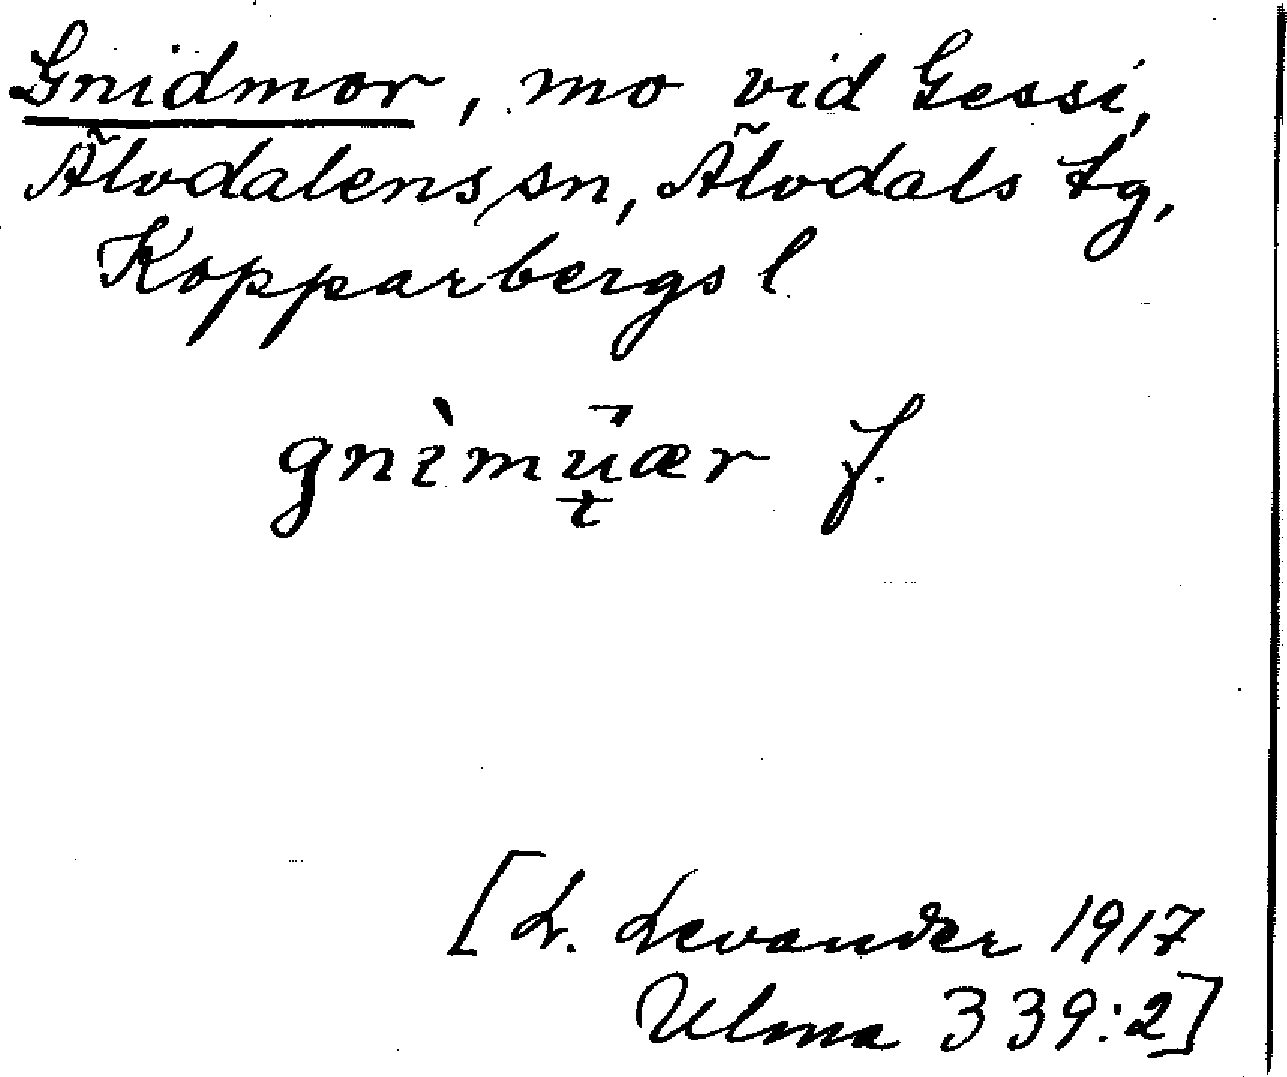 Gnidmor, mo vid Gessi,
Älvdalens sn, Älvdals tg,
Kopparbergs l
gnìmūær f.
[L. Levander 1917
Ulma 339:2]